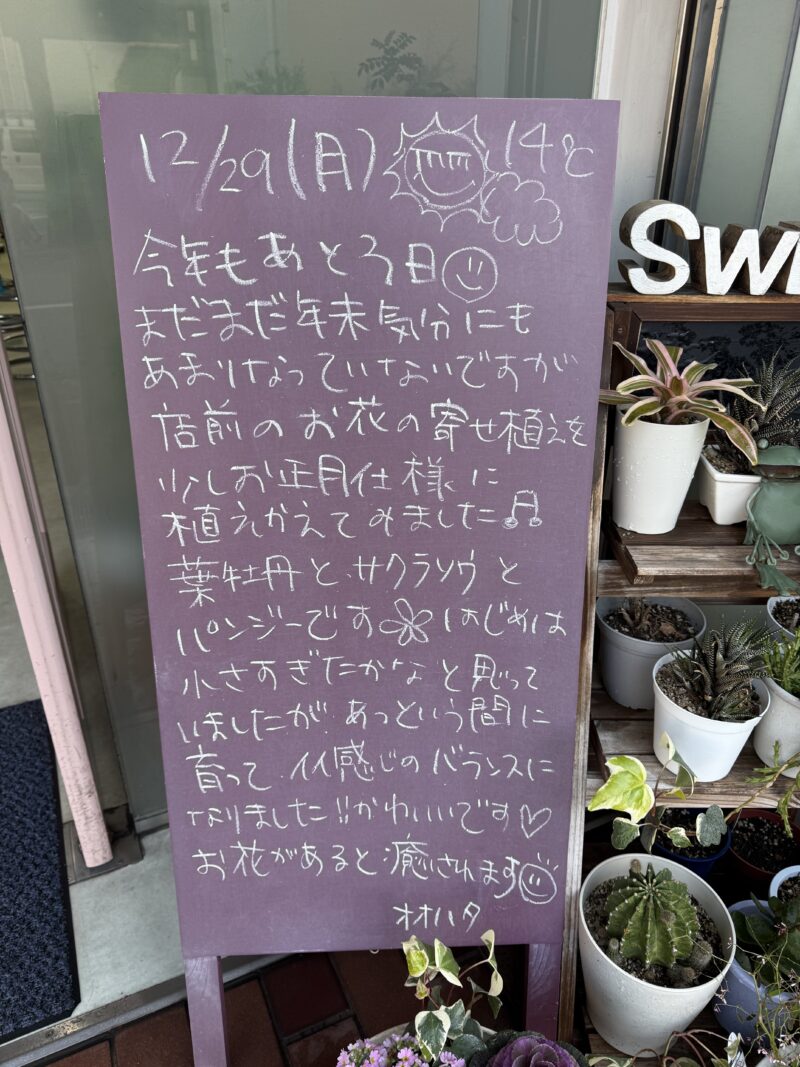 12/29(月) 14℃
今年もあと3日
まだまだ年末気分にも
あまりなっていないですが
店前のお花の寄せ植えを
少しお正月仕様に
植えかえてみました♫
葉牡丹と、サクラソウと
パンジーです はじめは
小さすぎたかなと思って
いましたが、あっという間に
育って、イイ感じのバランスに
なりました!!かわいいです♡
お花があると癒されます
オオハタ
SW